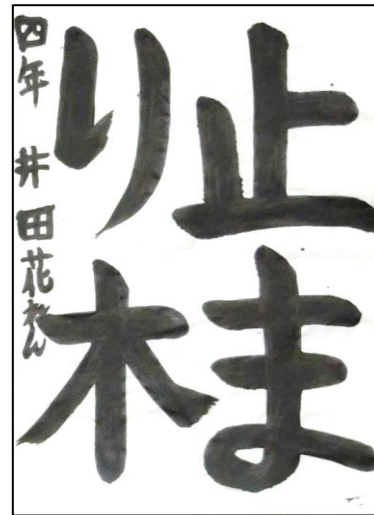 止ま
り木
四年 井田花れん